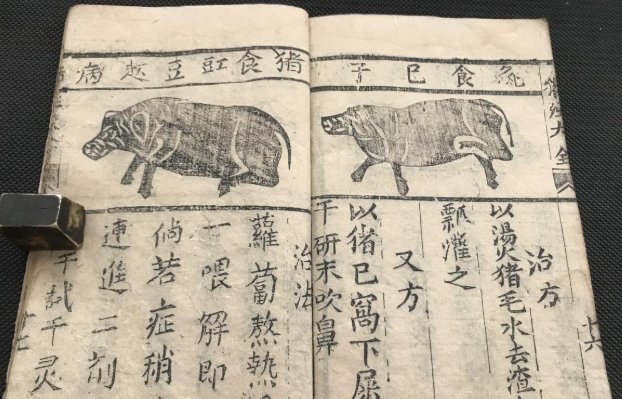 猪经大全
食巳子
治方
以燙猪毛水去渣
瓢灌之
又方
以猪巳窩下屎
干研末吹鼻
十六
猪食豇豆起病
治法
蘿蔔熬熱
一喂解即
倘若症稍
連進二剤
千試千灵
十七